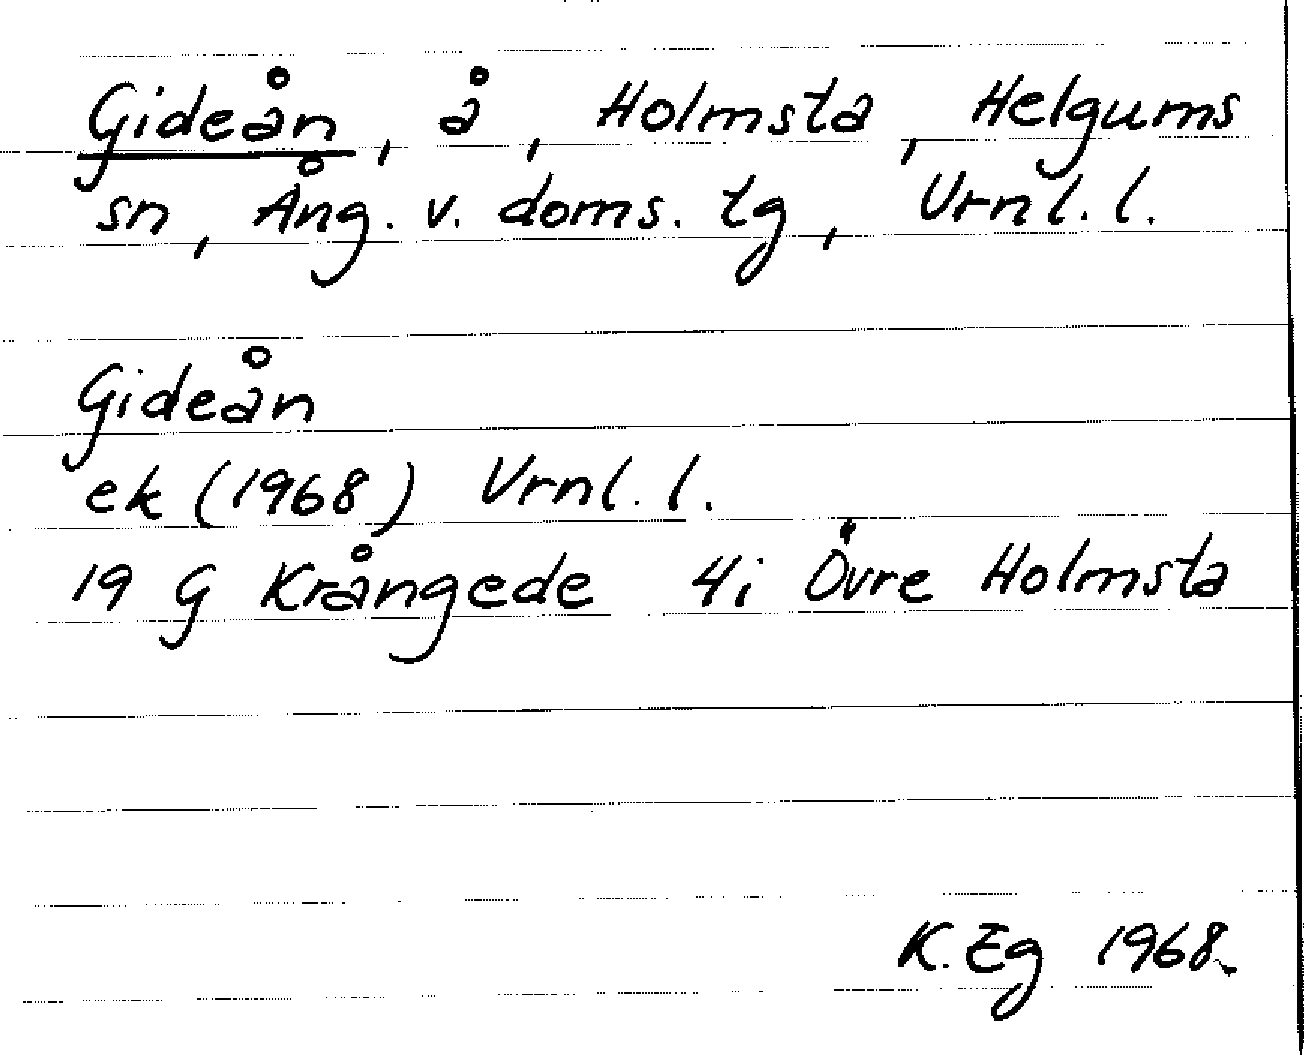 Gideån, å, Holmsta, Helgums
sn, Ång. v. doms. tg, Vrnl. l.
Gideån
ek (1968) Vrnl. l.
19 G Krångede 4i Övre Holmsta
K. Eg 1968